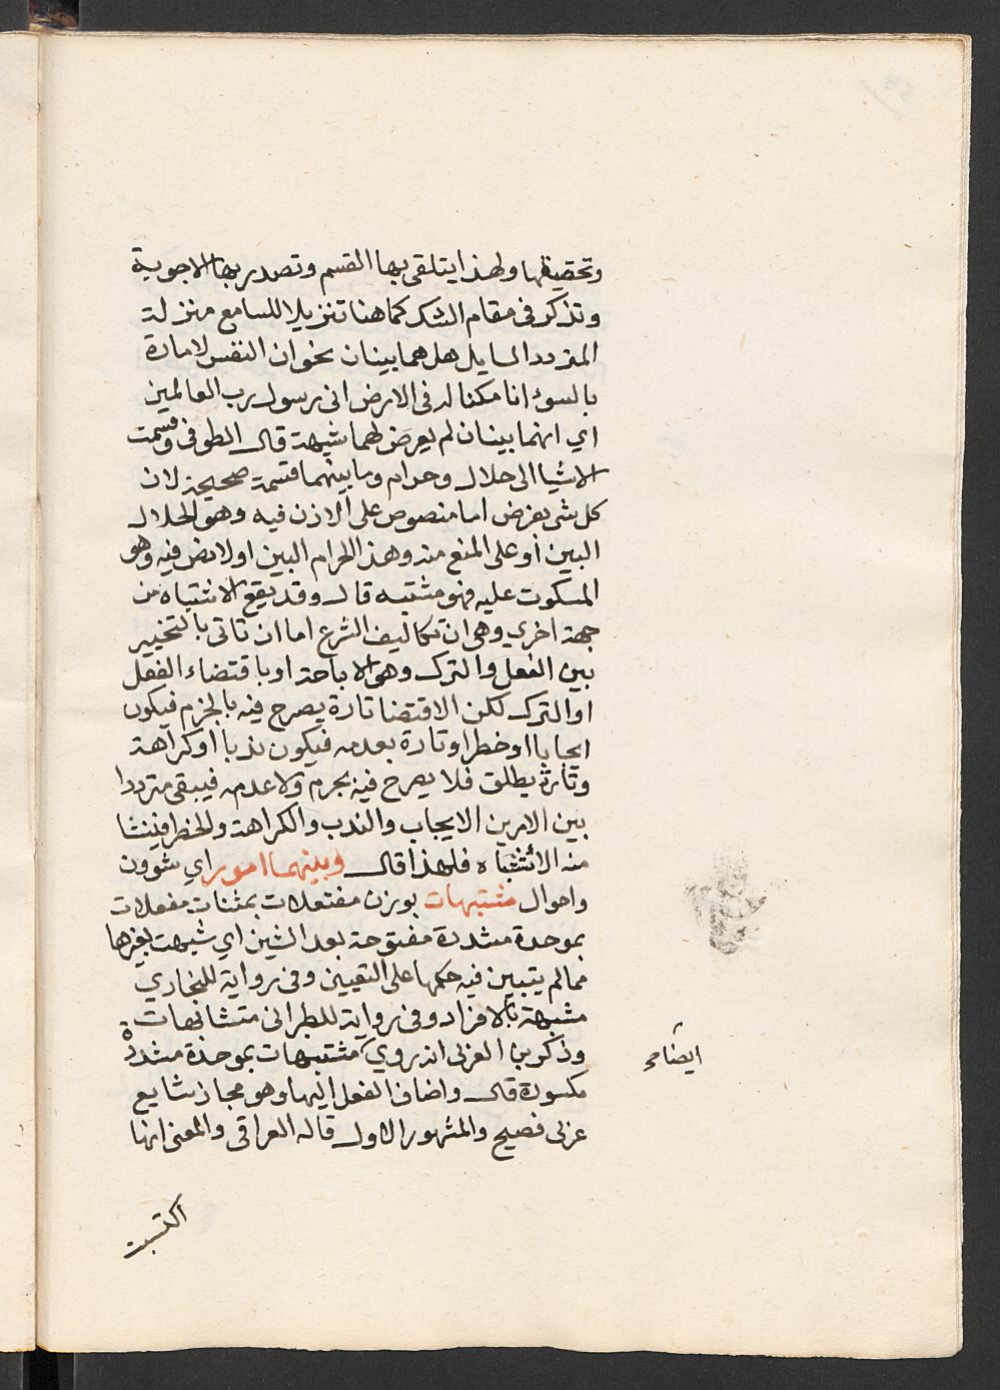 وتحقيقها ولهذا يتلقى بها القسم وتصدر بها الاجوبة
وتذكر في مقام الشك كما هنا تنزيلا للسامع منزلة
المتردد السايل هل هما بينان نحو ان النفس لامارة
بالسوء انا مكنا له في الارض اني رسول رب العالمين
اي انهما بينان لم يعرض لهما شبهة قال الطوفي وقسمت
الاشيا الى حلال وحرام وما بينهما قسمة صحيحة لان
كل شي يفرض اما منصوص على الاذن فيه وهو الحلال
البين او على المنع منه وهذا الحرام البين اولا نص فيه وهو
المسكوت عليه فهو مشتبه قال وقد يقع الاشتباه من
جهة اخري وهي ان تكاليف الشرع اما ان تاتي بالتخيير
بين الفعل والترك وهي الاباحة او باقتضاء الفعل
او الترك لكن الاقتضا تارة يصرح فيه بالجزم فيكون
ايجابا او خطرا وتارة بعدمه فيكون ندبا او كراهة
وتارة يطلق فلا يصرح فيه بجزم ولا عدمه فيبقى مترددا
بين الامرين الايجاب والندب والكراهة والخطر فينشا
منه الاشتباه فلهذا قال وبينهما امور اي شوون
واحوال مشتبهات بوزن مفتعلات بمثنات مفعلات
بموحدة مشددة مفتوحة بعد الشين اي شبهت بغيرها
مما لم يتبين فيه حكمها على التعيين وفي رواية للبخاري
مشبهة بالافراد وفي رواية للطبراني متشابهات
وذكر بن العربي انه روي مشتبهات بموحدة مشددة
ايضا صح
مكسورة قال واضاف الفعل اليها وهو مجاز شايع
عربي فصيح والمشهور الاول قاله العراقي والمعنى انها
اكتسبت